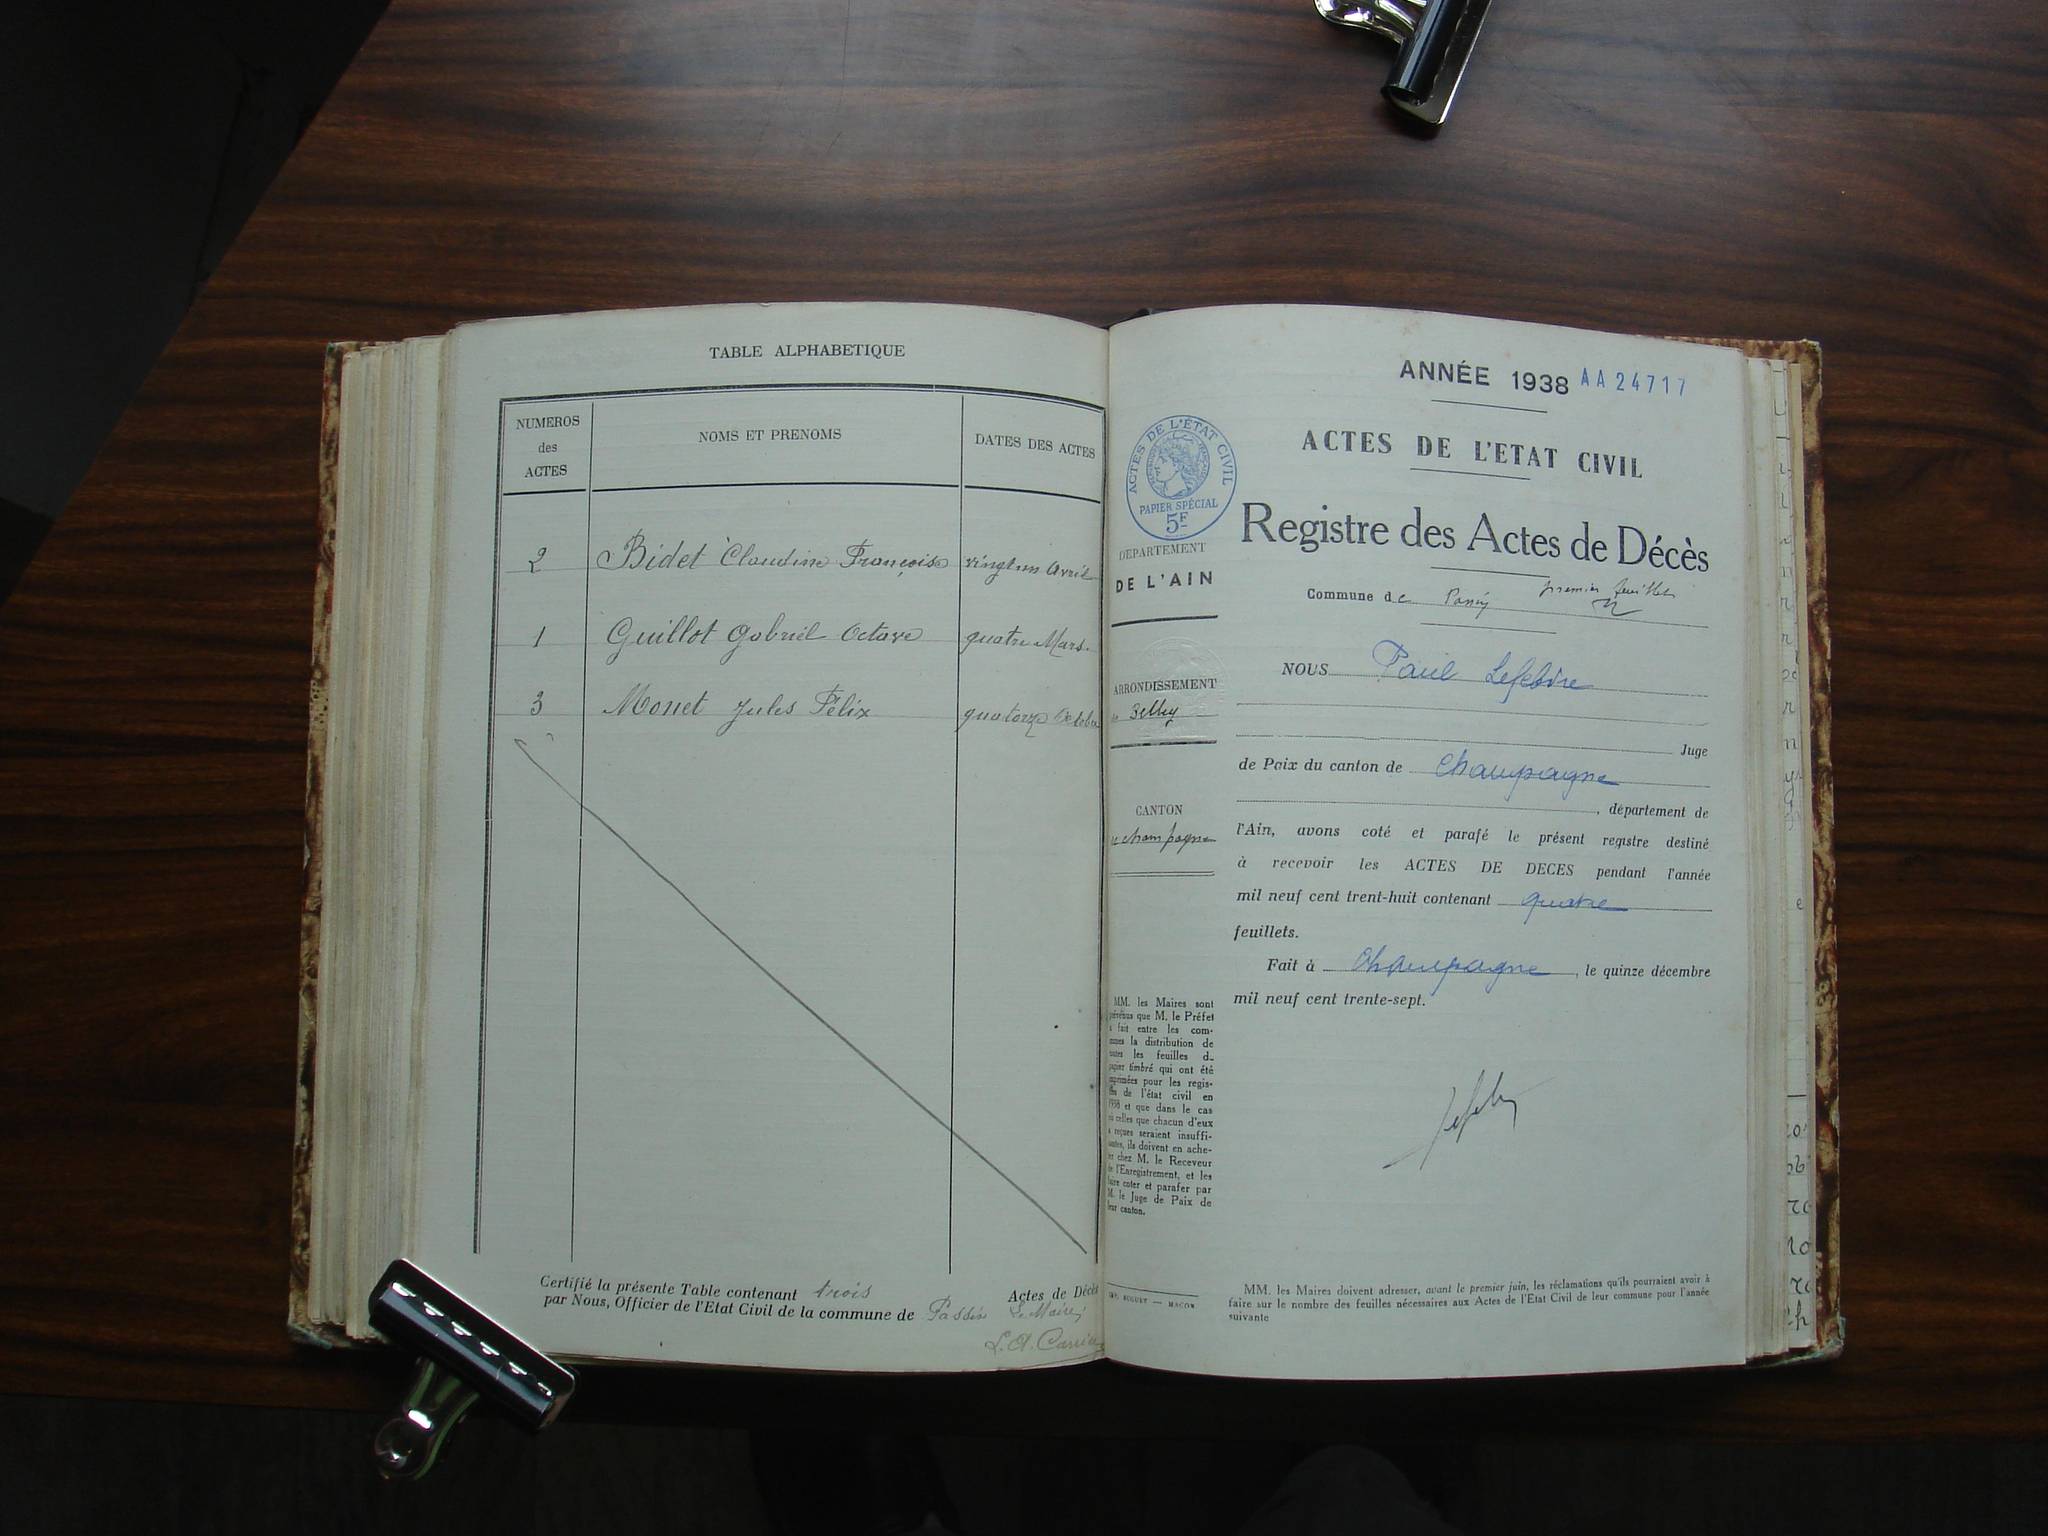 TABLE ALPHABETIQUE
NUMEROS
des
ACTES
NOMS ET PRENOMS
DATES DES ACTES
2 Bidet Claudine Françoise vingt un Avril
1 Guillot Gabriel Octave quatre Mars.
3 Monet Jules Félix quatorze Octobre
Certifié la présente Table contenant trois Actes de Décès
par Nous, Officier de l'Etat Civil de la commune de Passin Le Maire,
ANNÉE 1938 AA24717
ACTES DE L'ÉTAT CIVIL
PAPIER SPÉCIAL
5F
ACTES DE L'ETAT CIVIL
Registre des Actes de Décès
premier feuillet
Commune de
DEPARTEMENT
DE L'AIN
ARRONDISSEMENT
Belley
CANTON
de Champagne
MM. les Maires sont
prévenus que M. le Préfet
a fait entre les com-
munes la distribution de
toutes les feuilles de
papier timbré qui ont été
imprimées pour les regis-
tres de l'état civil en
1938 et que dans le cas
où celles que chacun d'eux
a reçues seraient insuffi-
santes, ils doivent en ache-
ter chez M. le Receveur
de l'Enregistrement, et les
faire coter et parafer par
M. le Juge de Paix de
leur canton.
NOUS Paul Lefebvre
Juge
de Paix du canton de Champagne
, département de
l'Ain, avons coté et parafé le présent registre destiné
à recevoir les ACTES DE DECES pendant l'année
mil neuf cent trent-huit contenant quatre
feuillets.
Fait à Champagne, le quinze décembre
mil neuf cent trente-sept.
MM. les Maires doivent adresser, avant le premier juin, les réclamations qu'ils pourraient avoir à
faire sur le nombre des feuilles nécessaires aux Actes de l'Etat Civil de leur commune pour l'année
suivante